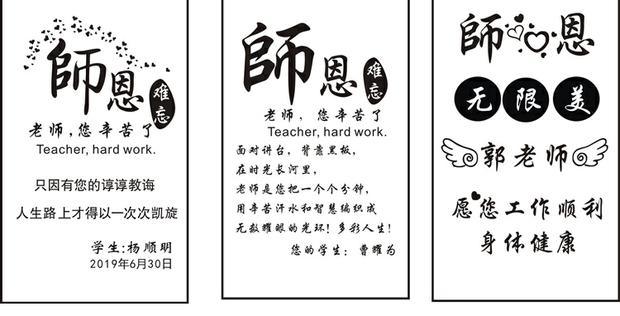 師恩
难忘
老师,您辛苦了
Teacher, hard work.
只因有您的谆谆教诲
人生路上才得以一次次凯旋
学生:杨顺明
2019年6月30日
師恩
难忘
老师,您辛苦了
Teacher, hard work.
面对讲台,背靠黑板,
在时光长河里,
老师是您把一个个分钟,
用辛苦汗水和智慧编织成
无数耀眼的光环!多彩人生!
您的学生:曹耀为
師恩
无限美
郭老师
愿您工作顺利
身体健康